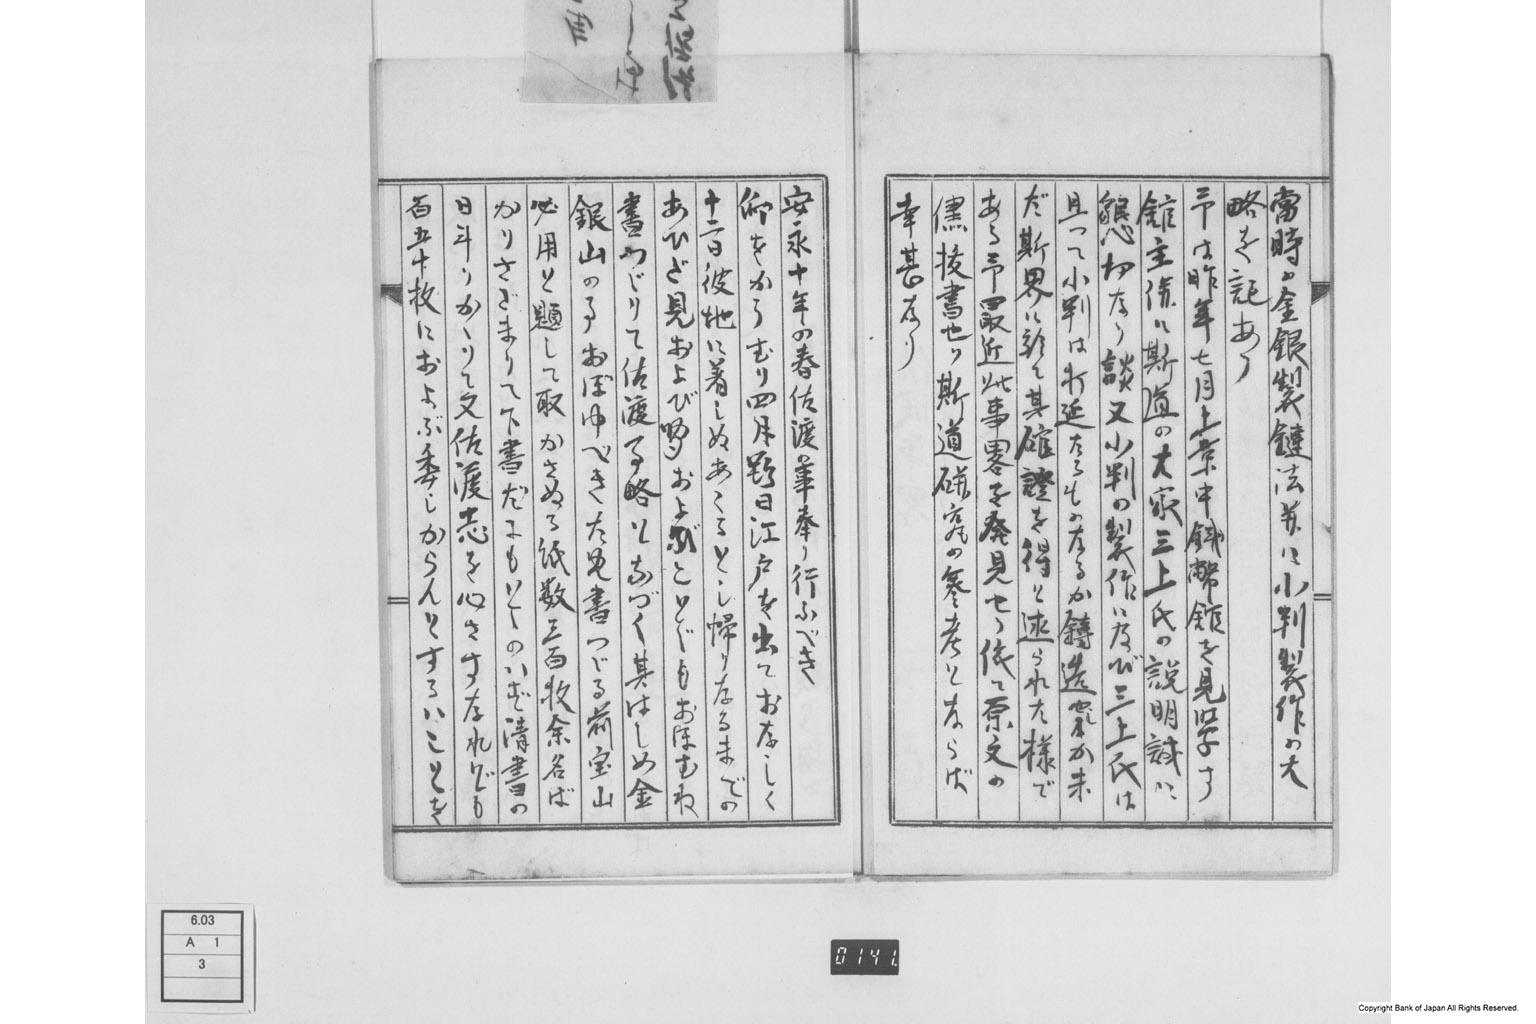 當時の金銀製錬法并に小判製作の大
略を記あり
予は昨年七月上京中錢幣館を見学す
館主併に斯道の大家三上氏の説明誠に
懇切なり談又小判の製作に及び三上氏は
且つて小判は打延たるものなるか鑄造か未
だ斯界に於て其確證を得と述られた様で
ある予最近此事畧を発見せり依て原文の
儘抜書せり斯道研究の參考とならば
幸甚なり
安永十年の春佐渡奉行ふべき
仰をかうむり四月朔日江戸を出ておなしく
十二日彼地に着しぬあくるとし帰りなるまでの
あひだ見および聞およぶことどもおほむね
書つゞりて佐渡事略となづく其はしめ金
銀山の事おぼゆべきため書つゞる前宝山
必用と題して取かさぬる紙数三百枚余名ば
かりさだまりて下書だにもとゝのハず清書の
日斗りかゝりて文佐渡志を心さすなれども
百五十枚におよぶ委しからんとすることを
6.03
A 1
3
0141
Copyright Bank of Japan All Rights Reserved.